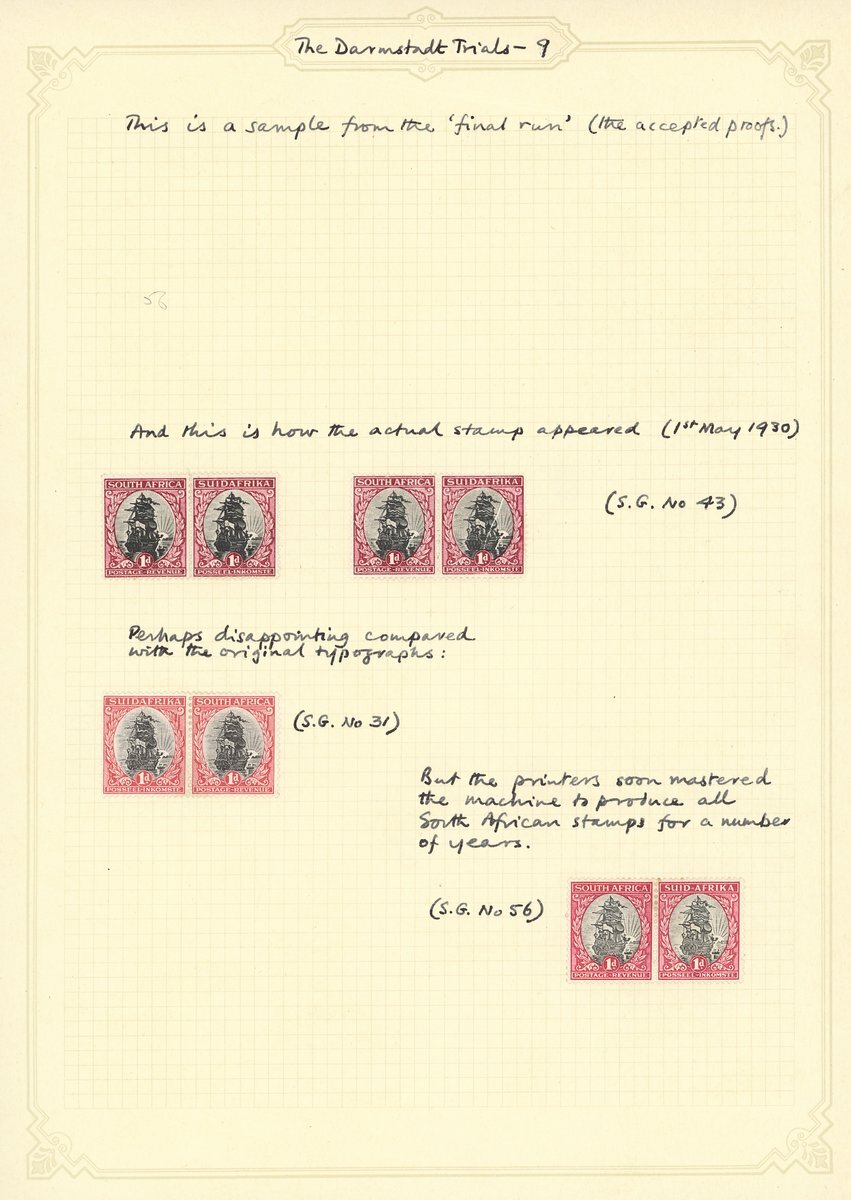 The Darmstadt Trials - 9
This is a sample from the 'final run' (the accepted proofs.)
56
And this is how the actual stamp appeared (1st May 1930)
SOUTH AFRICA SUIDAFRIKA SOUTH AFRICA SUIDAFRIKA
(S.G. No 43)
1d 1d 1d 1d
POSTAGE-REVENUE POSSEEL-INKOMSTE POSTAGE-REVENUE POSSEEL-INKOMSTE
Perhaps disappointing compared
with the original typographs:
SUIDAFRIKA SOUTH AFRICA
(S.G. No 31)
1d 1d
POSSEEL-INKOMSTE POSTAGE-REVENUE
But the printers soon mastered
the machine to produce all
South African stamps for a number
of years.
SOUTH AFRICA SUID-AFRIKA
(S.G. No 56)
1d 1d
POSTAGE-REVENUE POSSEEL-INKOMSTE